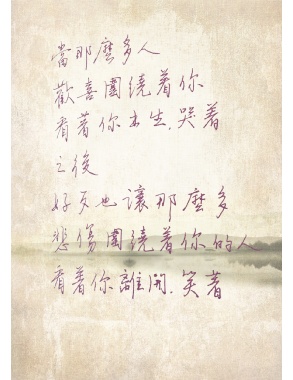 當那麼多人
歡喜圍繞着你
看著你出生.哭着
之後
好歹也讓那麼多
悲傷圍繞着你的人
看著你離開.笑著